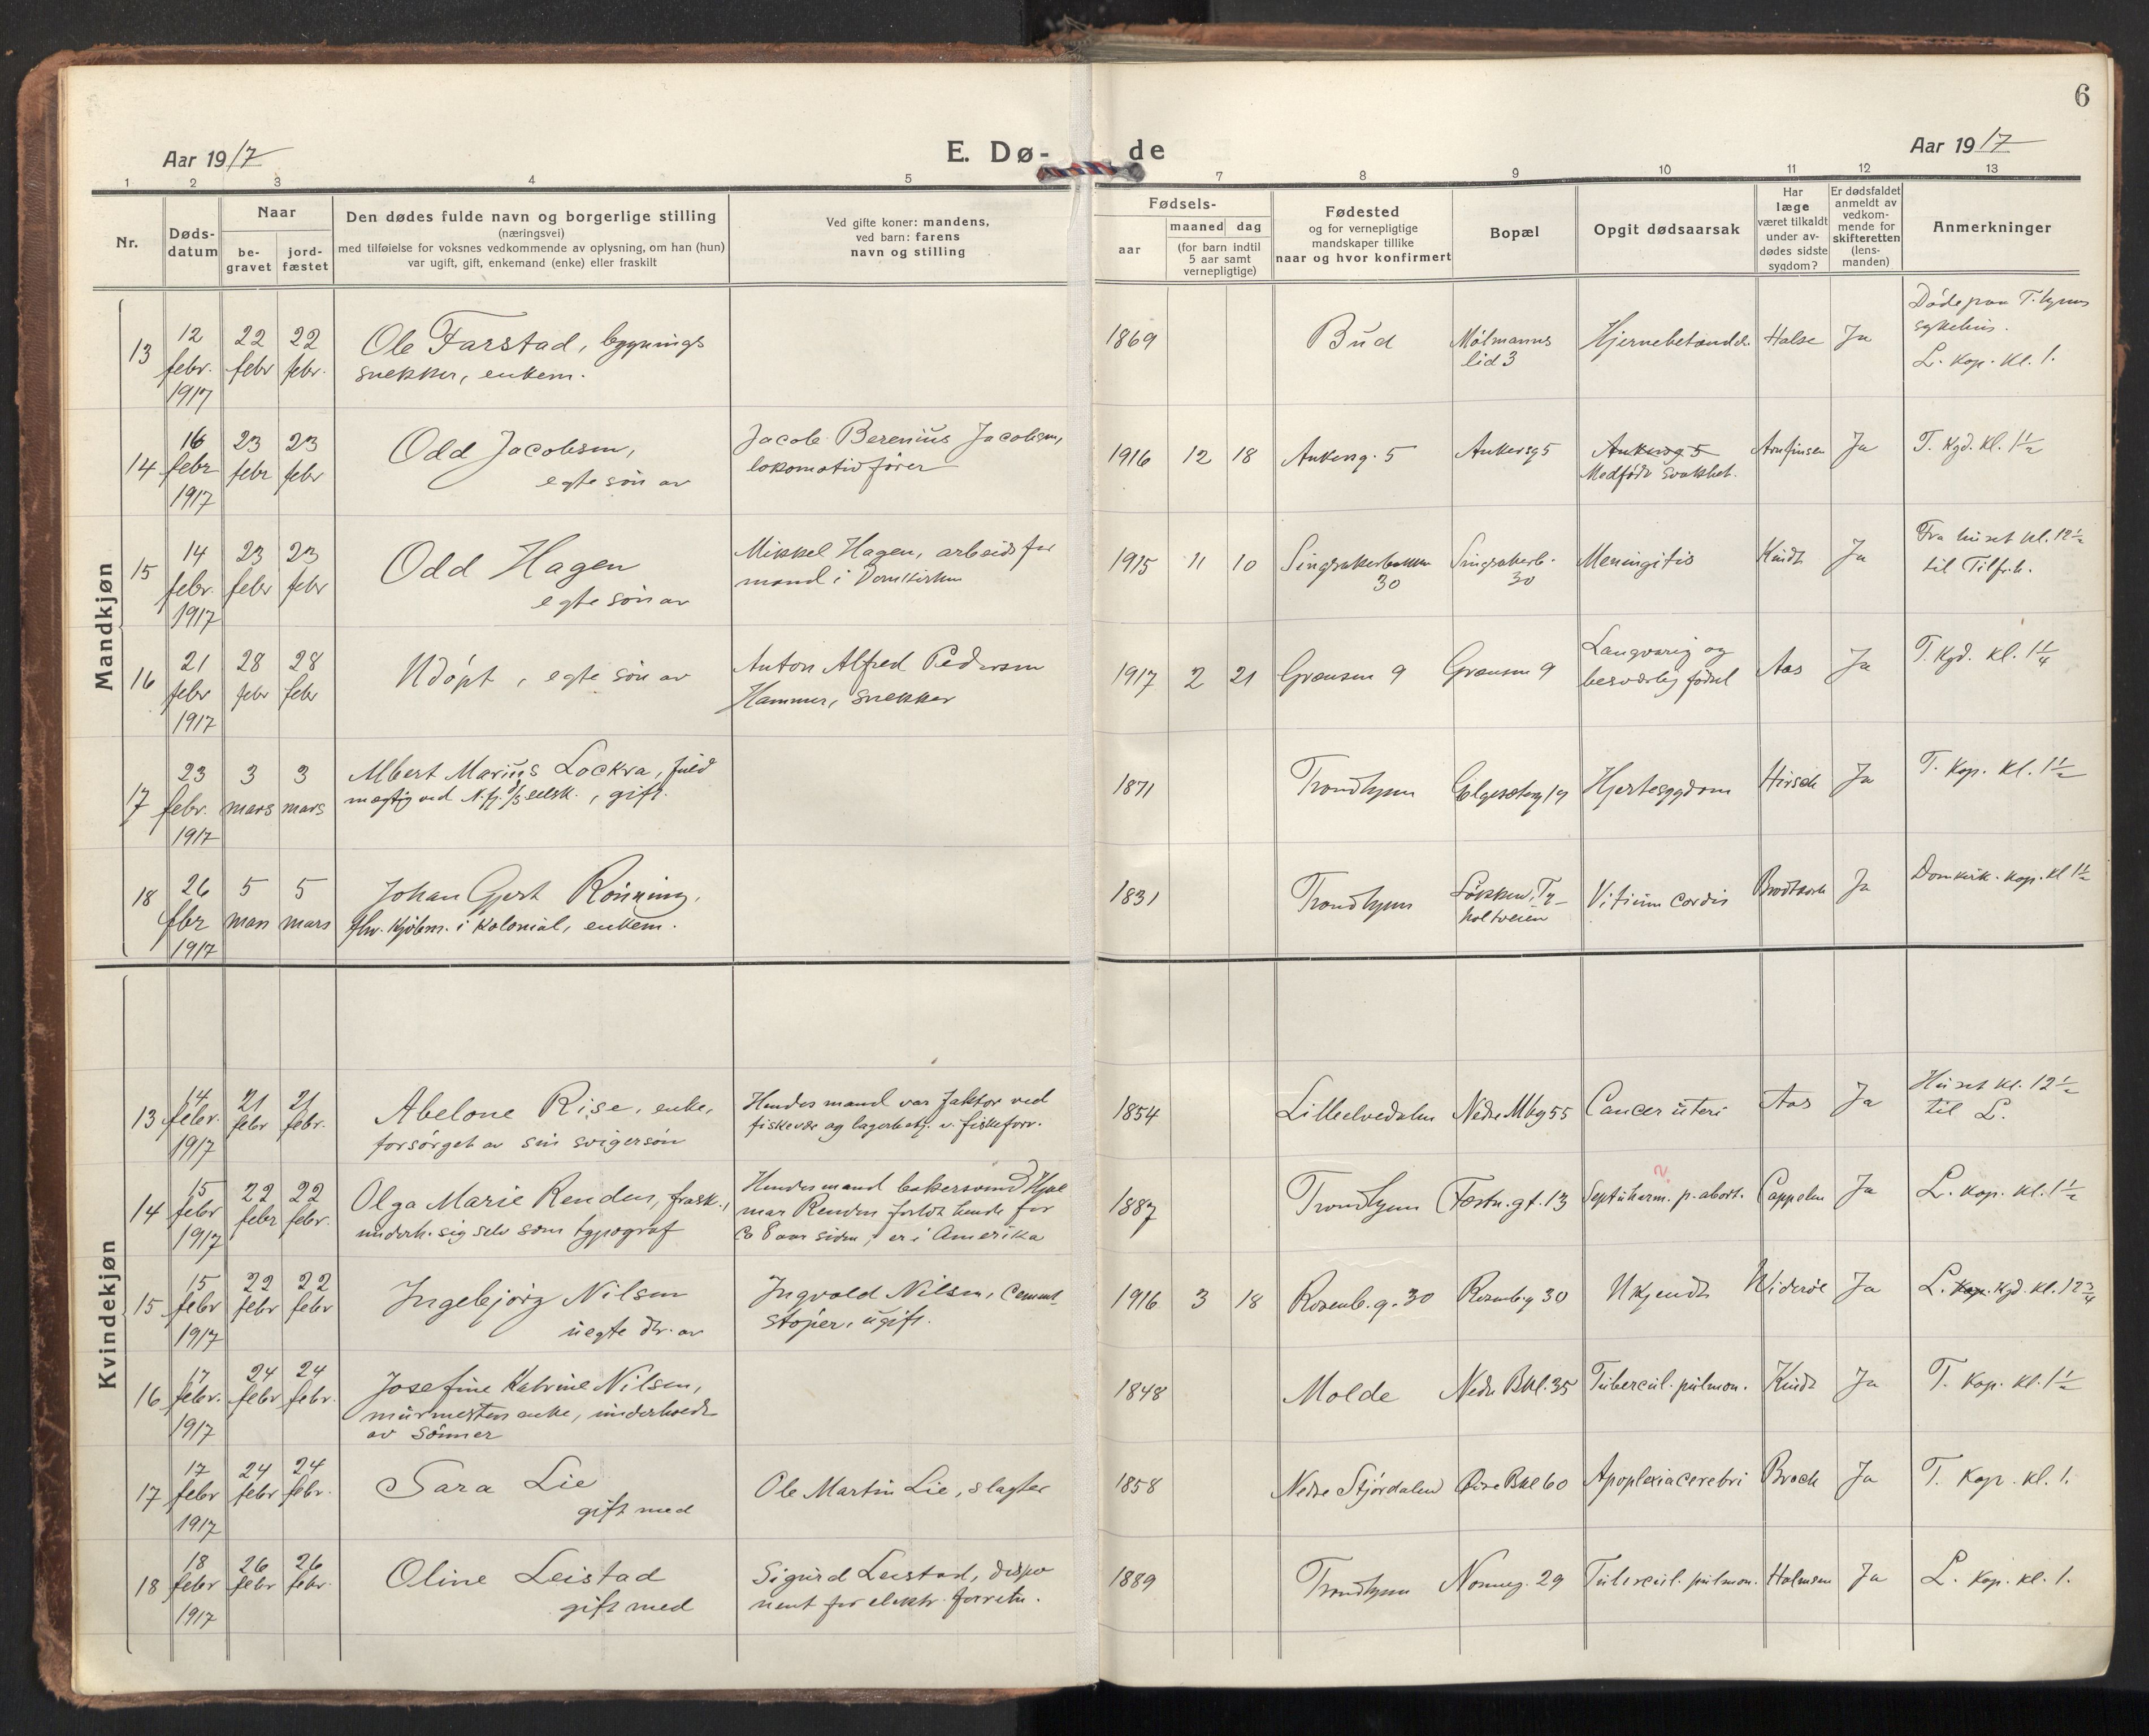 6
Aar 1917
E. Dø-
de
Aar 1917
1 2 3 4 5 7 8 9 10 11 12 13
Nr.
Døds-
datum
Naar
be-
gravet
jord-
fæstet
Den dødes fulde navn og borgerlige stilling
(næringsvei)
med tilføielse for voksnes vedkommende av oplysning, om han (hun)
var ugift, gift, enkemand (enke) eller fraskilt
Ved gifte koner: mandens,
ved barn: farens
navn og stilling
Fødsels-
aar
maaned dag
(for barn indtil
5 aar samt
vernepligtige)
Fødested
og for vernepligtige
mandskaper tillike
naar og hvor konfirmert
Bopæl
Opgit dødsaarsak
Har
læge
været tilkaldt
under av-
dødes sidste
sygdom?
Er dødsfaldet
anmeldt av
vedkom-
mende for
skifteretten
(lens-
manden)
Anmerkninger
Mandkjøn
13
12 febr. 1917
22 febr
22 febr.
Ole Farstad, bygnings
snekker, enkem.
1869
Bud
Mølmanns
lid 3
Halse
Ja
sykehus.
L. kap. kl. 1.
14
16 febr 1917
23 febr
23 febr
Odd Jacobsen,
egte søn av
Jacob Berenius Jacobsen,
lokomotivfører
1916 12 18
Ankersg. 5
Ankersg 5
Ankersg 5
Medfødt svakhet.
Arnfinsen
Ja
T. Kgd. kl. 1½
15
14 febr. 1917
23 febr
23 febr
Odd Hagen
egte søn av
Mikkel Hagen, arbeidsfor
mand i Domkirken
1915 11 10
Singsakerbakken
30
Singsakerb.
30
Meningitis
Kindt
Ja
Fra huset kl. 12½
til Tilfr.k.
16
21 febr 1917
28 febr
28 febr
Udøpt, egte søn av
Anton Alfred Pedersen
Hammer, snekker
1917 2 21
Grænsen 9
Grænsen 9
Langvarig og
besværlig fødsel
Aas
Ja
T. Kgd. kl. 1¼
17
23 febr. 1917
3 mars
3 mars
Albert Marius Lockra, fuld
mægtig ved N.fj. d/s selsk., gift.
1871
Trondhjem
Elgesæterg 19
Hjertesygdom
Hirsch
Ja
T. Kap. kl. 1½
18
26 febr 1917
5 mars
5 mars
Johan Gjert Rønning,
fhv. kjøbm. i kolonial, enkem.
1831
Trondhjem
Løkken, Ty-
holtveien
Vitium cordis
Brodtkorb
Ja
Domkirk. kap. kl 1½
Kvindekjøn
13
14 febr. 1917
21 febr
21 febr.
Abelone Rise, enke,
forsørget av sin svigersøn
Hendes mand var faktor ved
1854
Lilleelvedalen
Nedre Mbg 55
Cancer uteri
Aas
Ja
Huset kl. 12½
til L.
14
15 febr 1917
22 febr
22 febr.
Olga Marie Renden, frask.,
underh. sig selv som typograf
Hendes mand bakersvend Hjal
mar Renden forlot hende for
ca 8 aar siden, er i Amerika
1887
Trondhjem
Festn.gt. 13
?
p. abort.
Cappelen
Ja
L. kap. kl. 1½
15
15 febr 1917
22 febr
22 febr
Ingebjørg Nilsen
uegte dtr. av
Ingvald Nilsen, cement-
støper, ugift.
1916 3 18
Rosenb.g. 30
Rosenb.g 30
Ukjendt
Widerøe
Ja
L. kap. Kgd. kl. 12¾
16
17 febr. 1917
24 febr
24 febr.
Josefine Katrine Nilsen,
murmesterenke, underholdt
av sønner
1848
Molde
Nedre Bkl. 35
Tubercul. pulmon.
Kindt
Ja
T. Kap. kl. 1½
17
17 febr 1917
24 febr
24 febr.
Sara Lie
gift med
Ole Martin Lie, slagter
1858
Nedre Stjørdalen
Øvre Bkl 60
Apoplexia cerebri
Broch
Ja
T. Kap. kl. 1.
18
18 febr 1917
26 febr
26 febr.
Oline Leistad
gift med
Sigurd Leistad, dispo
nent for elektr. forretn.
1889
Trondhjem
Nonneg. 29
Tubercul. pulmon.
Holmsen
Ja
L. Kap. kl. 1.